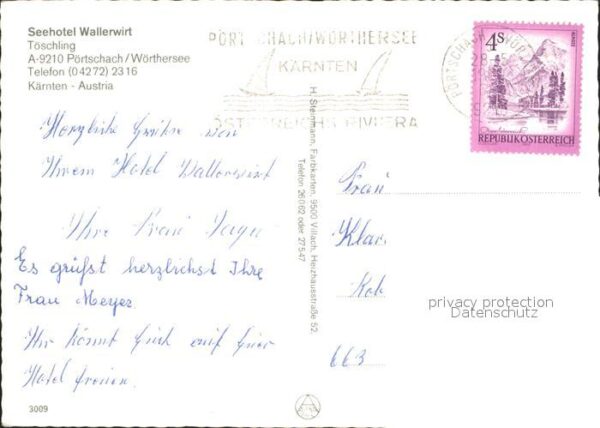 Seehotel Wallerwirt
Töschling
A-9210 Pörtschach/Wörthersee
Telefon (04272) 2316
Kärnten - Austria
PÖRTSCHACH/WÖRTHERSEE
KÄRNTEN
ÖSTERREICHS RIVIERA
4S
REPUBLIK ÖSTERREICH
Herzliche Grüße von
Ihrem Hotel Wallerwirt
Ihre Frau
Es grüßt herzlichst Ihre
Frau Meyer
Ihr könnt Euch auf Euer
Hotel freuen.
3009
H. Steinmann, Farbkarten, 9500 Villach, Herzhausstraße 52,
Telefon 26062 oder 27547
Frau
Klar
Kob
663
privacy protection
Datenschutz